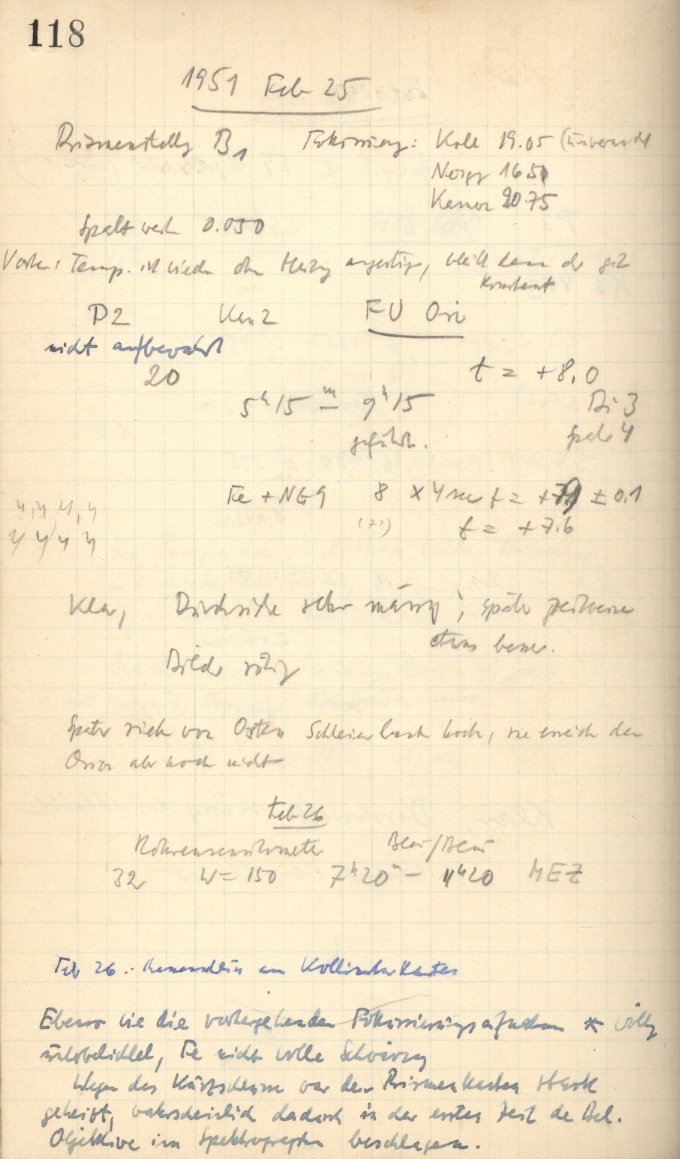 118
1951 Feb 25
Prismenstellg B1 Fokussierung: Koll 19.05 (unverändt
Neigg 16.50
Kamera 20.75
Spaltweite 0.050
Vorher: Temp. ist wieder ohne Heizg, bleibt dann gut
konstant
P2 Ken 2 FU Ori
nicht aufbewahrt
20
t = +8,0
5h15m – 9h15
Bi 3
geführt.
Spalt 4
Fe + NG9 8 × 4 sec t = ± 0.1
t = +7.6
4, 4 4, 4
4 4 4 4
Klar, Durchsicht sehr mässig; später zeitweise
etwas besser.
Bilder ruhig
Später zieht von Osten Schleierbank hoch, sie erreicht den
Orion aber noch nicht
Feb 26
Röhrensensitometer Blau/Blau
32 W = 150 7h20m – 11h20 MEZ
Feb 26. am
Ebenso wie die vorhergehenden Fokussierungsaufnahmen * völlig
unterbelichtet, Fe nicht volle Schwärzg
Wegen des war der Prismenkasten stark
geheizt, wahrscheinlich dadurch in der ersten Zeit der Bel.
Objektive im Spektrographen beschlagen.